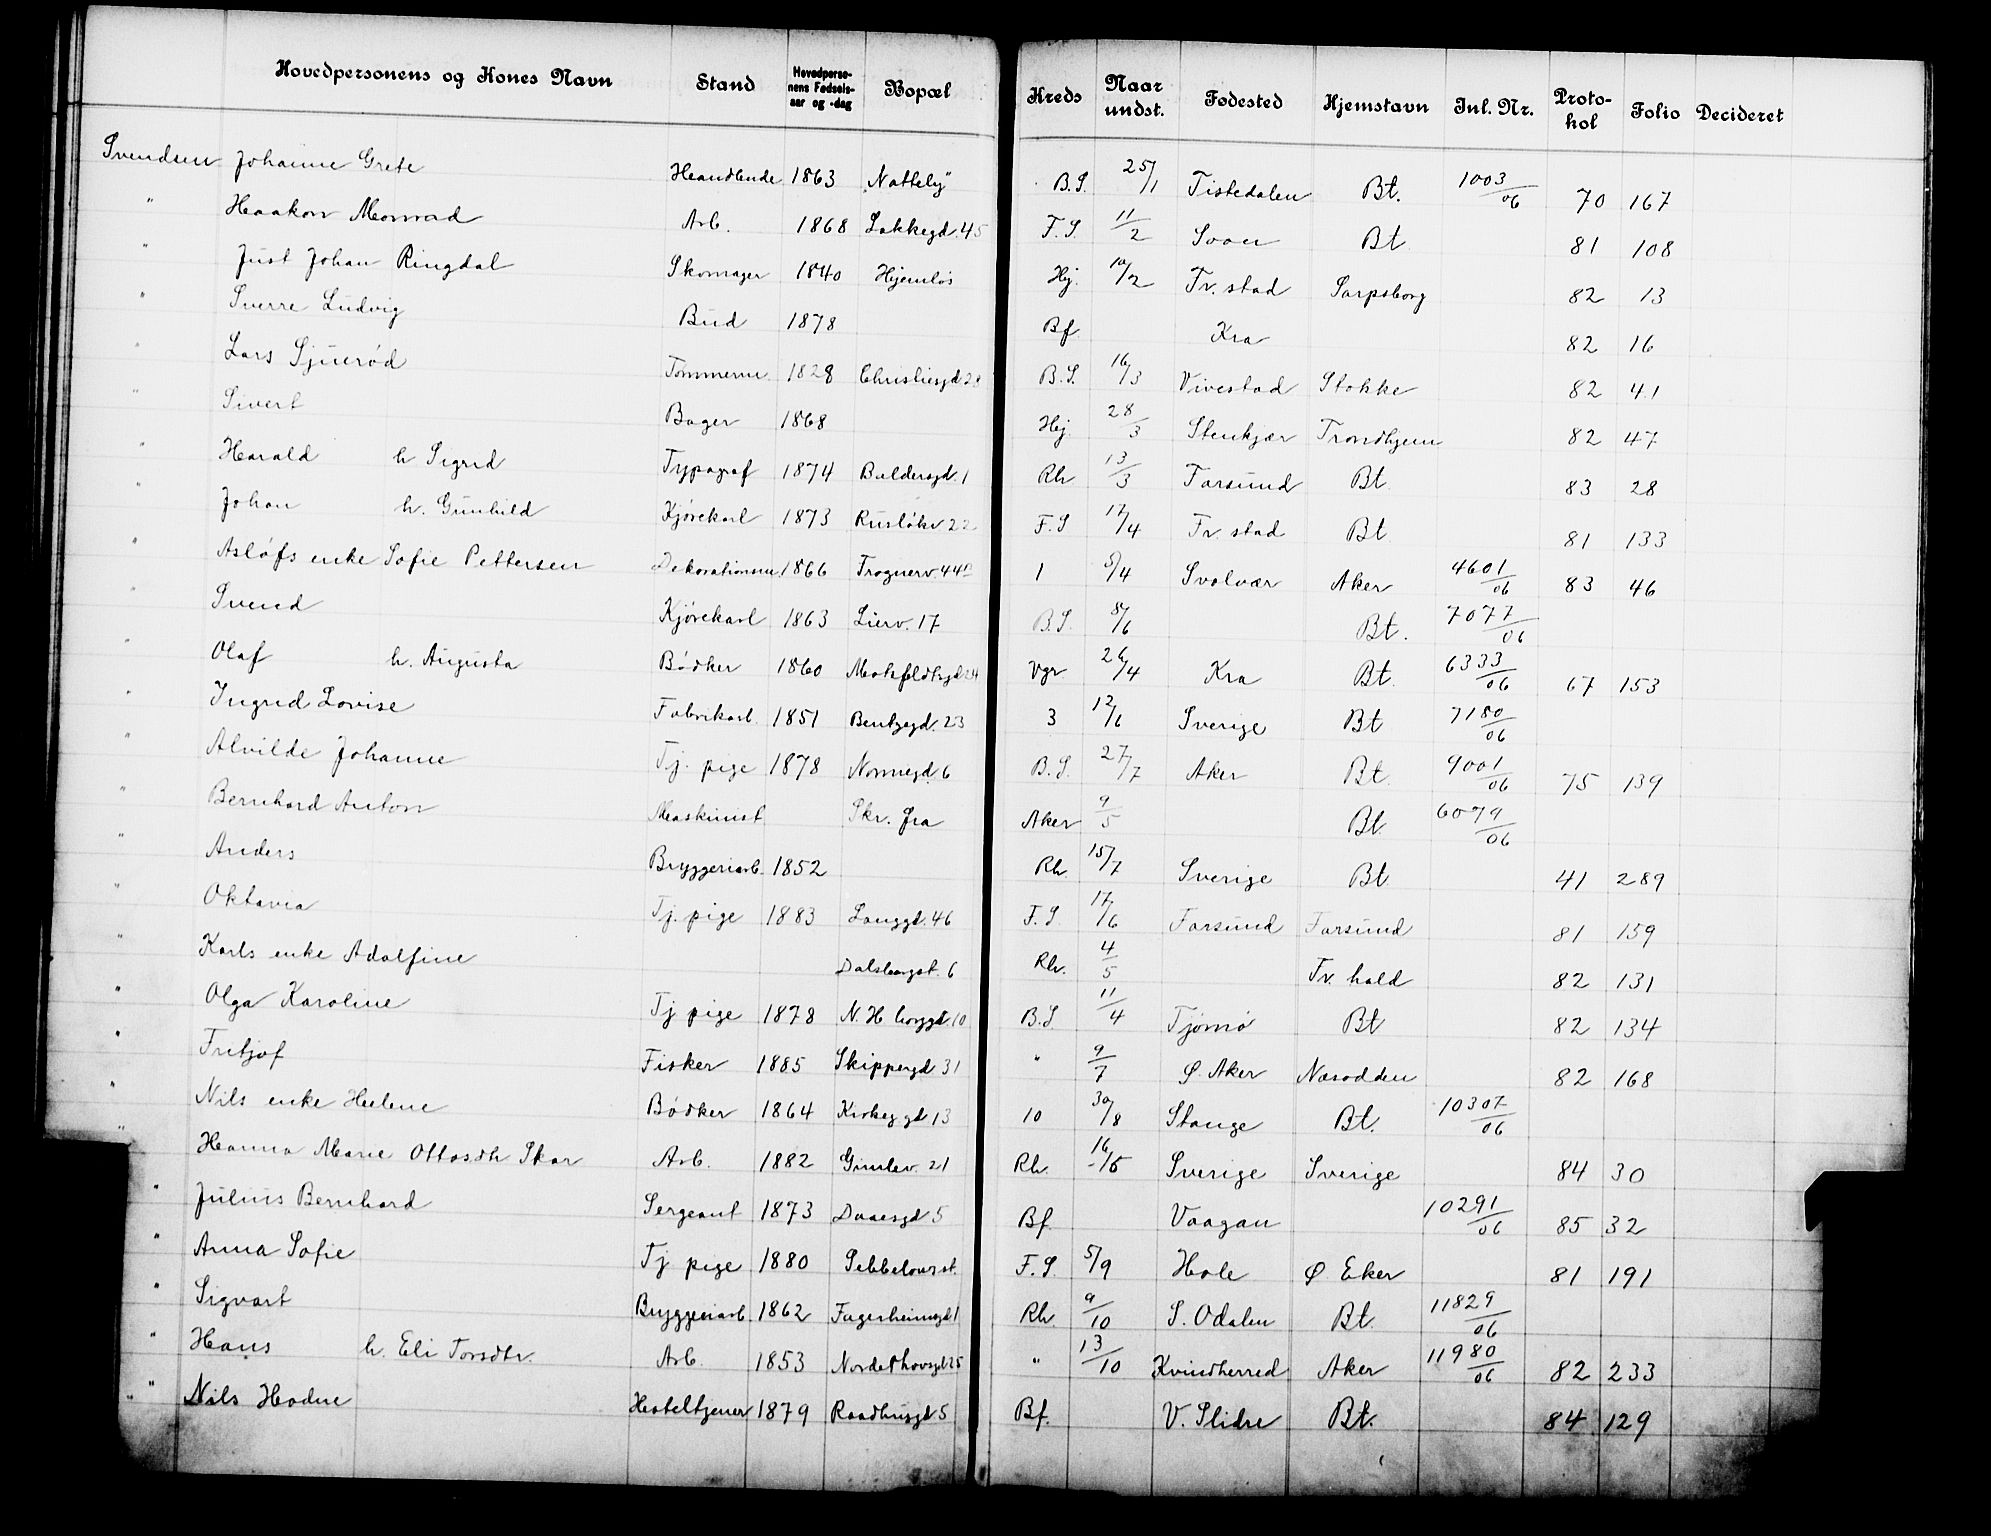 Hovedpersonens og Kones Navn Stand Hovedperso-nens Fødsels-aar og -dag Bopæl Kreds Naar undst. Fødested Hjemstavn Jnl. Nr. Proto-kol Folio Decideret
Svendsen Johanne Grete Handlende 1863 „Nattely" B.S. 25/1 Tistedalen Bt. 1003/06 70 167
" Haakon Monrad Arb. 1868 Lakkegd. 45 F.S. 11/2 Soon Bt 81 108
" Just Johan Ringdal Skomager 1840 Hjemløs Hj. 10/2 Fr. stad Sarpsborg 82 13
" Sverre Ludvig Bud 1878 Bf. Kra 82 16
" Lars Sjuerød Tømmerm. 1828 Christiesgd 28 B.S. 16/3 Vivestad Stokke 82 41
" Sivert Bager 1868 Hj. 28/3 Stenkjær Trondhjem 82 47
" Harald h Sigrid Typograf 1874 Baldersgd. 1 Rh 13/3 Farsund Bt 83 28
" Johan h. Gunhild Kjørekarl 1873 Rusløkv 22 F.S 17/4 Fr. stad Bt 81 133
" Asløfs enke Sofie Pettersen Dekorationsm 1866 Frognerv. 44B 1 5/4 Svolvær Aker 4601/06 83 46
" Svend Kjørekarl 1863 Lierv. 17 B.S. 8/6 Bt. 7077/06
" Olaf h. Augusta Bødker 1860 Motzfeldtsgd 24 Vgr 26/4 Kra Bt. 6333/06 67 153
" Ingrid Lovise Fabrikarb. 1851 Bentzegd. 23 3 12/6 Sverige Bt 7180/06
" Alvilde Johanne Tj. pige 1878 Normegd. 6 B.S. 27/7 Aker Bt. 9001/06 75 139
" Bernhard Anton Maskinist Skr. fra Aker 9/5 Bt. 6079/06
" Anders Bryggeriarb. 1852 Rh. 15/7 Sverige Bt. 41 289
" Oktavia Tj. pige 1883 Langgd. 46 F.S. 17/6 Farsund Farsund 81 159
" Karls enke Adolfine Dalsbergst. 6 Rh. 4/5 Fr. hald 82 131
" Olga Karoline Tj pige 1878 N. H 10 B.S 11/4 Tjømø Bt 82 134
" Fritjof Fisker 1885 Skippergd 31 " 9/7 Ø. Aker Næsodden 82 168
" Nils enke Helene Bødker 1864 Kirkeggd 13 10 30/8 Stange Bt. 10307/06
" Hanna Marie Ottosdtr Skar Arb. 1882 Gimlev. 21 Rh. 16/5 Sverige Sverige 84 30
" Julius Bernhard Sergeant 1873 Daaesgd 5 Bf. Vaagan 10291/06 85 32
" Anna Sofie Tj pige 1880 Sebbelowst. F.S. 5/9 Hole Ø Eker 81 191
" Sigvart Bryggeriarb. 1862 Fagerheimgd 1 Rh. 9/10 S. Odalen Bt. 11829/06
" Hans h. Eli Torsdtr. Arb. 1853 Nordethovsgd 25 " 13/10 Kvindherred Aker 11980/06 82 233
" " Nils Hodne Hoteltjener 1879 Raadhusgd 5 Bf. V. Slidre Bt. 84 129